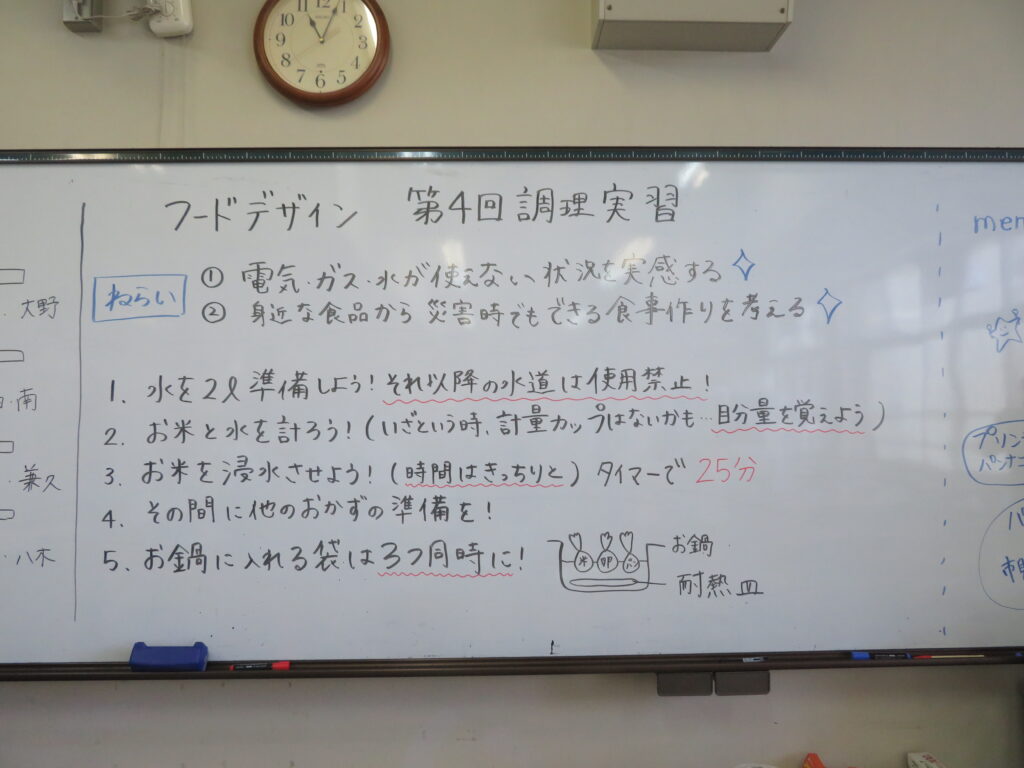 フードデザイン 第4回調理実習
ねらい
① 電気・ガス・水が使えない状況を実感する
② 身近な食品から災害時でもできる食事作りを考える
1. 水を2ℓ準備しよう!それ以降の水道は使用禁止!
2. お米と水を計ろう!(いざという時、計量カップはないかも…目分量を覚えよう)
3. お米を浸水させよう!(時間はきっちりと)タイマーで 25分
4. その間に他のおかずの準備を!
5. お鍋に入れる袋は3つ同時に!
米 卵 パン
お鍋
耐熱皿
大野
・南
・兼久
・八木
mem
プリン
パンナコ
12 1 2 3 4 5 6 7 8 9 10 11